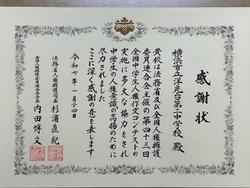 感謝状
横浜市立洋光台第一中学校 殿
貴校は法務省及び全国人権擁護
委員連合会主催の第四十三回
全国中学生人権作文コンテストの
実施に多大な御協力をされ
中学生の人権意識の高揚のために
尽力されました
ここに深く感謝の意を表します
令和七年一月二十四日
法務省人権擁護局長 杉浦直紀
全国人権擁護委員連合会会長 内田博文